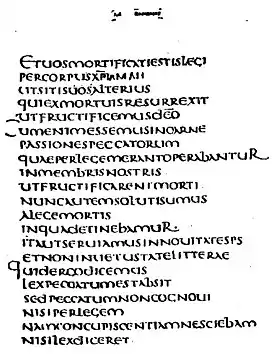 ETUOSMORTIFICATIESTISLEGI
PERCORPUSXPI
UTSITISUOSALTERIUS
QUIEXMORTUISRESURREXIT
UTFRUCTIFICEMUSDEO
CUMENIMESSEMUSINCARNE
PASSIONESPECCATORUM
QUAEPERLEGEMERANTOPERABANTUR
INMEMBRISNOSTRIS
UTFRUCTIFICARENTMORTI
NUNCAUTEMSOLUTISUMUS
ALEGEMORTIS
INQUADETINEBAMUR
ITAUTSERUIAMUSINNOUITATESPS
ETNONINUETUSTATELITTERAE
QUIDERGODICEMUS
LEXPECCATUMESTABSIT
SEDPECCATUMNONCOGNOUI
NISIPERLEGEM
NAMCONCUPISCENTIAMNESCIEBAM
NISILEXDICERET